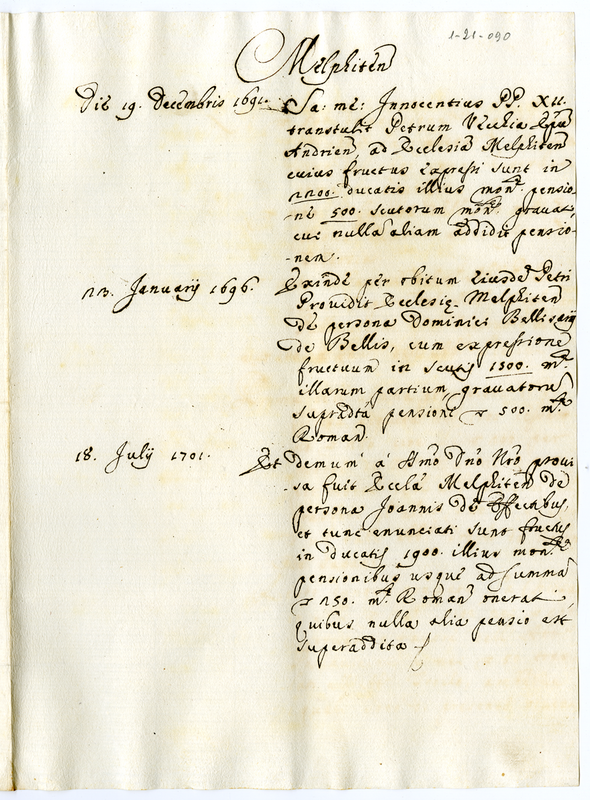 1-21-090
Melphiten
Die 19. Decembris 1691. Sa: me: Innocentius PP. XII.
transtulit Petrum Vecchia Epũ
Andrien, ad Ecclesiã Melphiten
cuius fructus expressi sunt in
ducatis illius monᵗᵉ pensio-
-ne 500. scutorum monᵗᵉ gravat,
cui nullã aliam addidit pensio-
-nem.
23. Januarij 1696. Exindè per obitum eiusdẽ Petri
Providit Ecclesię Melphiten
de persona Dominici Bellisarij
de Bellis, cum expressione
fructuum in scutis 1500. mᵗᵉ
illarum partium, gravatorũ
supradᵗᵃ pensione 500. mᵗᵉ
Roman.
18. Julij 1701. Et demum à Smõ Dnõ Nrõ provi-
-sa fuit Ecclã Melphiten de
persona Joannis de Effectibus,
et tunc enunciati sunt fructus
in ducatis 1900. illius monᵗᵉ
pensionibus usque ad summã
250. mᵗᵉ Roman onerati,
quibus nulla alia pensio est
superaddita